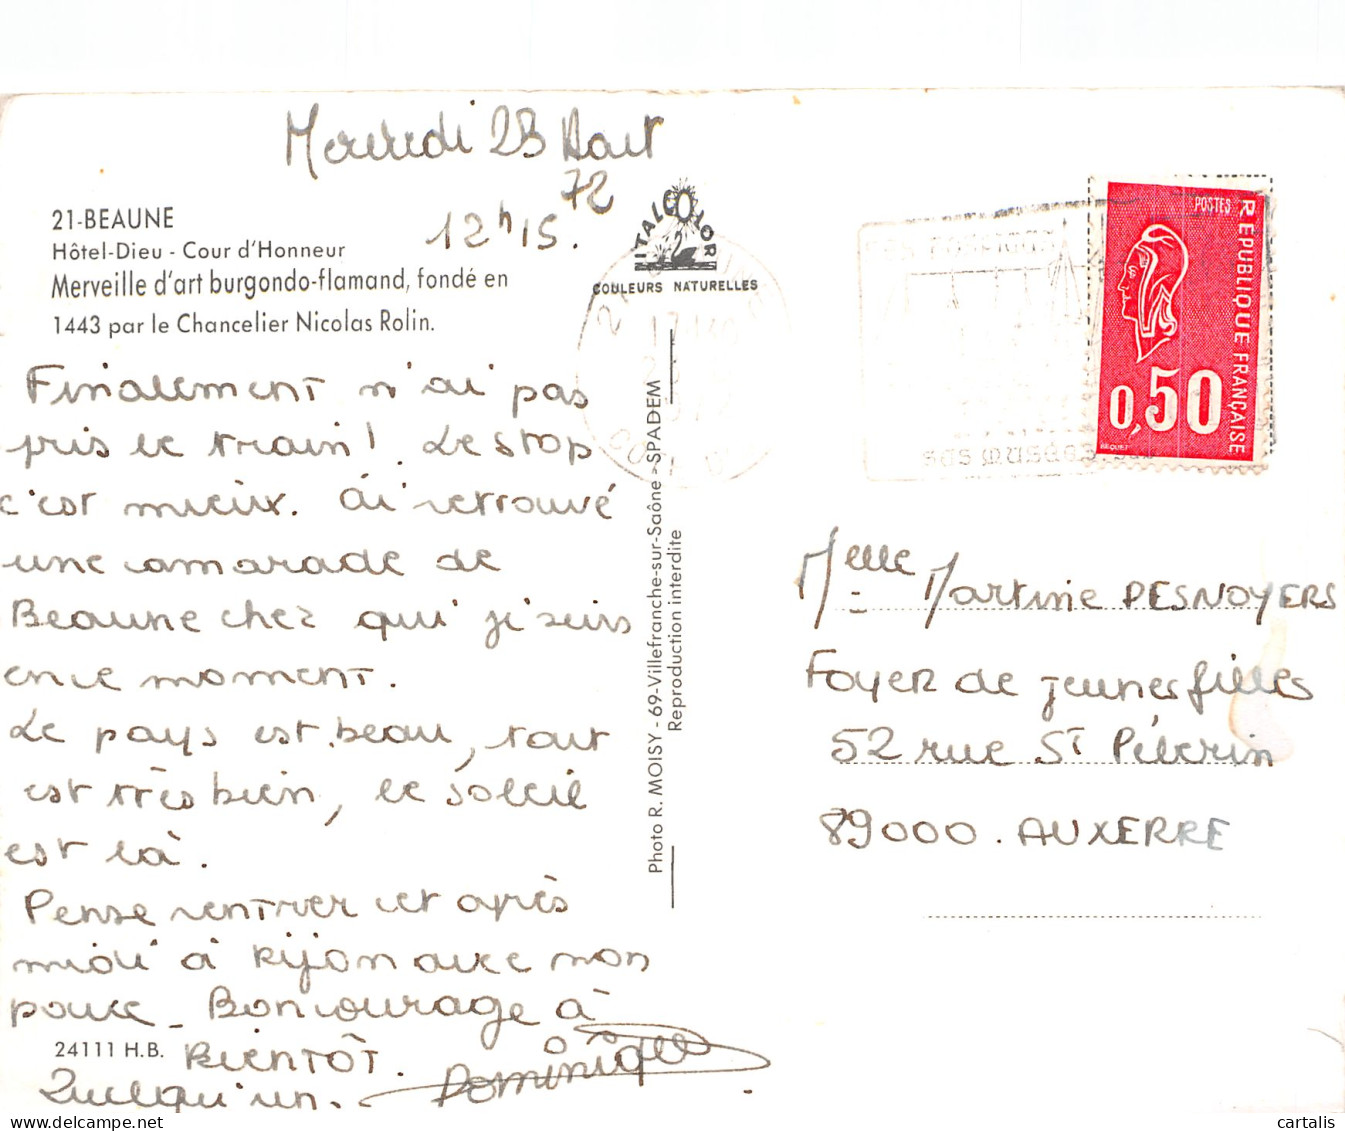 Mercredi 23 Aout
72
12h15.
21-BEAUNE
Hôtel-Dieu - Cour d'Honneur
Merveille d'art burgondo-flamand, fondé en
1443 par le Chancelier Nicolas Rolin.
ITALCOLOR
COULEURS NATURELLES
Finalement n'ai pas
pris le train! Le stop
c'est mieux. Ai retrouvé
une camarade de
Beaune chez qui je suis
en ce moment.
Le pays est beau, tout
est très bien, le soleil
est là.
Pense rentrer cet après
midi à Dijon avec mon
pouce - Bon courage à
Bientôt.
Quelqu'un.
Dominique
24111 H.B.
Photo R. MOISY - 69-Villefranche-sur-Saône - SPADEM
Reproduction interdite
SES MUSÉES
POSTES
REPUBLIQUE FRANÇAISE
0,50
BEQUET
Melle Martine DESNOYERS
Foyer de jeunes filles
52 rue St Pélerin
89000. AUXERRE
cartalis
www.delcampe.net